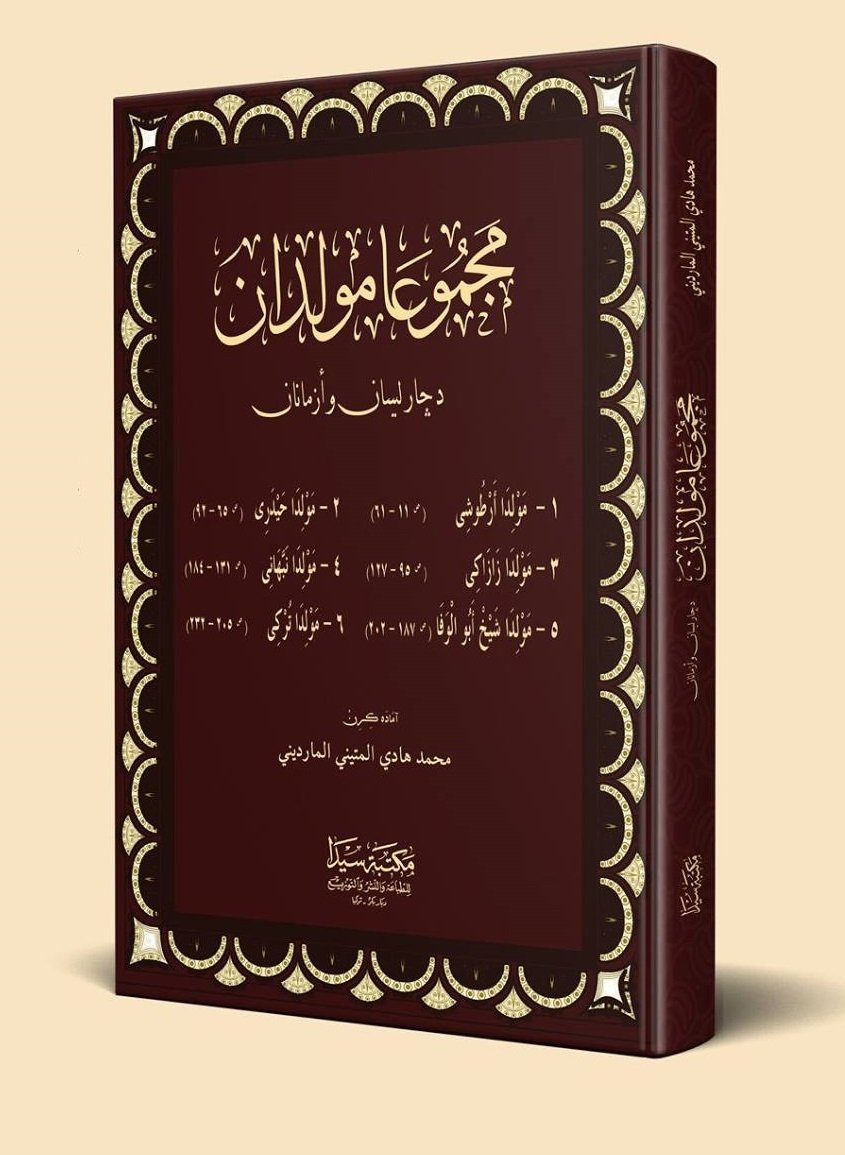 مَجْمُوعَا مولدان
د چار لیسان و أزمانان
١ - مَوْلِدَا أَرْطُوشِی (صـ ١١ - ٦١) ٢ - مَوْلِدَا حَیْدَرِی (صـ ٦٥ - ٩٢)
٣ - مَوْلِدَا زَازَاكِی (صـ ٩٥ - ١٢٧) ٤ - مَوْلِدَا نَبْهَانِی (صـ ١٣١ - ١٨٤)
٥ - مَوْلِدَا شَیْخْ أَبُو الْوَفَا (صـ ١٨٧ - ٢٠٢) ٦ - مَوْلِدَا تُرْكِی (صـ ٢٠٥ - ٢٣٢)
آمَادَه كِرِنْ
محمد هادي المتيني المارديني
مكتبة سيدا
للطباعة والنشر والتوزيع
ديار بكر - تركيا
محمد هادي المتيني المارديني
مجموعا مولدان
د چار لیسان و أزمانان
مكتبة سيدا